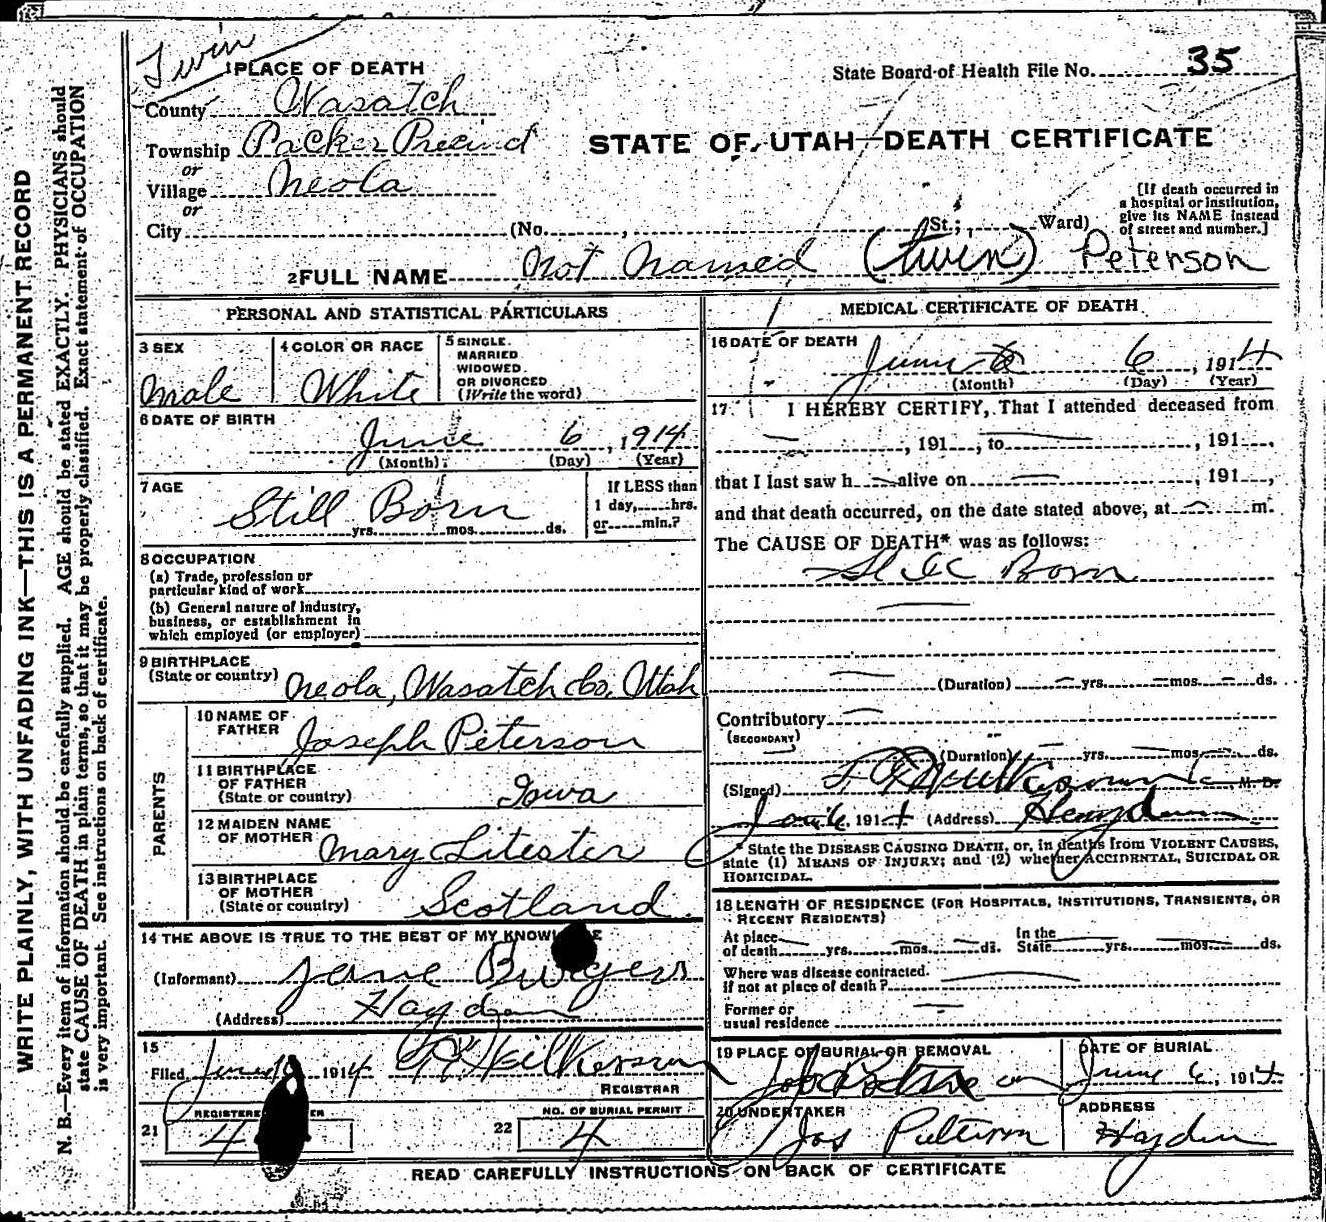 Twin
1 PLACE OF DEATH
State Board of Health File No. 35
County Wasatch
Township Packer Precinct
STATE OF UTAH—DEATH CERTIFICATE
or
Village Neola
or
City (No. , St.; Ward)
[If death occurred in
a hospital or institution,
give its NAME instead
of street and number.]
2 FULL NAME Not Named (twin) Peterson
PERSONAL AND STATISTICAL PARTICULARS
3 SEX
Male
4 COLOR OR RACE
White
5 SINGLE.
MARRIED
WIDOWED.
OR DIVORCED
(Write the word)
6 DATE OF BIRTH
June 6, 1914
(Month) (Day) (Year)
7 AGE
Still Born
yrs. mos. ds.
If LESS than
1 day, hrs.
or min.?
8 OCCUPATION
(a) Trade, profession or
particular kind of work
(b) General nature of industry,
business, or establishment in
which employed (or employer)
9 BIRTHPLACE
(State or country) Neola, Wasatch Co, Utah
PARENTS
10 NAME OF
FATHER Joseph Peterson
11 BIRTHPLACE
OF FATHER
(State or country) Iowa
12 MAIDEN NAME
OF MOTHER Mary Litester
13 BIRTHPLACE
OF MOTHER
(State or country) Scotland
14 THE ABOVE IS TRUE TO THE BEST OF MY
(Informant) Jane Burgess
(Address) Hayden
15
Filed June 1914
REGISTRAR
21 4
NO. OF BURIAL PERMIT
22 4
MEDICAL CERTIFICATE OF DEATH
16 DATE OF DEATH
June 6, 1914
(Month) (Day) (Year)
17 I HEREBY CERTIFY, That I attended deceased from
, 191 , to , 191 ,
that I last saw h alive on , 191 ,
and that death occurred, on the date stated above, at m.
The CAUSE OF DEATH* was as follows:
Still Born
(Duration) yrs. mos. ds.
Contributory
(SECONDARY)
(Duration) yrs. mos. ds.
(Signed) , M. D.
6, 1914 (Address) Hayden
* State the DISEASE CAUSING DEATH, or, in deaths from VIOLENT CAUSES,
state (1) MEANS OF INJURY; and (2) whether ACCIDENTAL, SUICIDAL OR
HOMICIDAL.
18 LENGTH OF RESIDENCE (FOR HOSPITALS, INSTITUTIONS, TRANSIENTS, OR
RECENT RESIDENTS)
At place
of death yrs. mos. ds.
In the
State yrs. mos. ds.
Where was disease contracted.
if not at place of death?
Former or
usual residence
19 PLACE OF BURIAL OR REMOVAL
DATE OF BURIAL
June 6, 1914
20 UNDERTAKER
Jos Peterson
ADDRESS
Hayden
READ CAREFULLY INSTRUCTIONS ON BACK OF CERTIFICATE
WRITE PLAINLY, WITH UNFADING INK—THIS IS A PERMANENT RECORD
N. B.—Every item of information should be carefully supplied. AGE should be stated EXACTLY. PHYSICIANS should
state CAUSE OF DEATH in plain terms, so that it may be properly classified. Exact statement of OCCUPATION
is very important. See instructions on back of certificate.